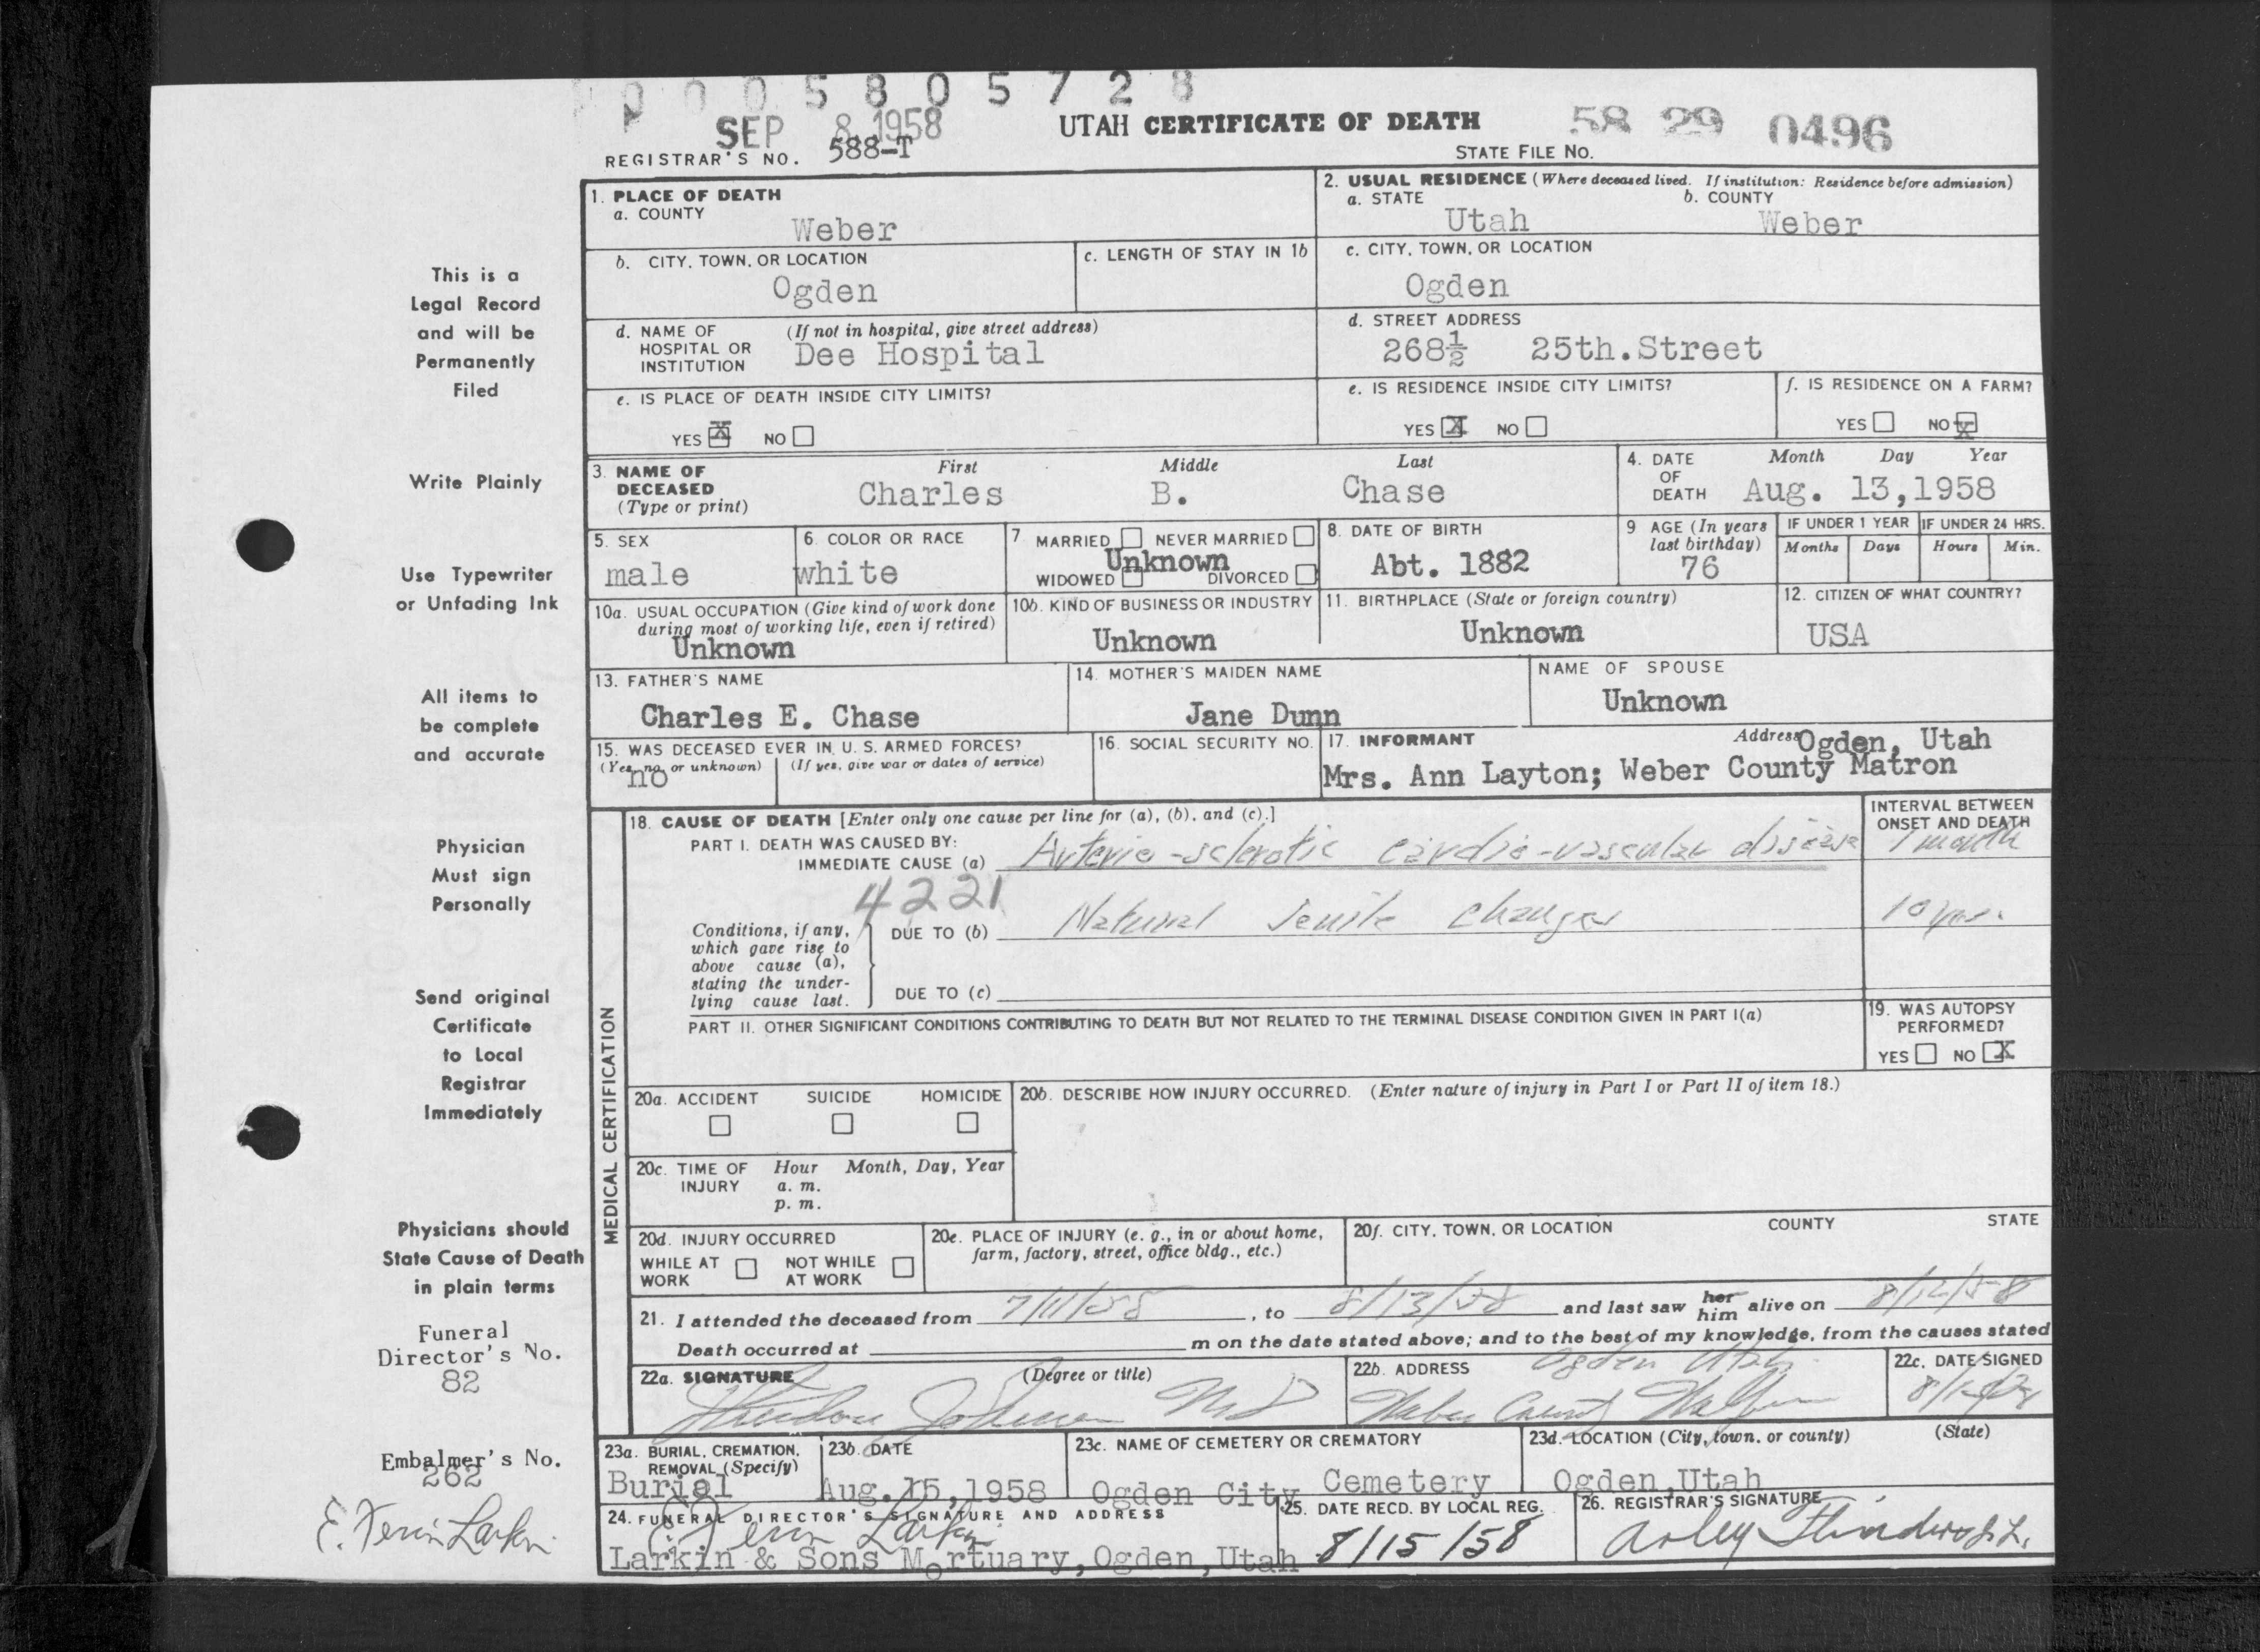 0 0 0 5 8 0 5 7 2 8
SEP 8 1958
UTAH CERTIFICATE OF DEATH
58 29 0496
REGISTRAR'S NO. 588-T
STATE FILE NO.
This is a
Legal Record
and will be
Permanently
Filed
Write Plainly
Use Typewriter
or Unfading Ink
All items to
be complete
and accurate
Physician
Must sign
Personally
Send original
Certificate
to Local
Registrar
Immediately
Physicians should
State Cause of Death
in plain terms
Funeral
Director's No.
82
Embalmer's No.
262
E. Ferrin Larkin
1. PLACE OF DEATH
a. COUNTY
Weber
2. USUAL RESIDENCE (Where deceased lived. If institution: Residence before admission)
a. STATE b. COUNTY
Utah Weber
b. CITY, TOWN, OR LOCATION
Ogden
c. LENGTH OF STAY IN 1b
c. CITY, TOWN, OR LOCATION
Ogden
d. NAME OF (If not in hospital, give street address)
HOSPITAL OR
INSTITUTION
Dee Hospital
d. STREET ADDRESS
268½ 25th.Street
e. IS PLACE OF DEATH INSIDE CITY LIMITS?
YES X NO
e. IS RESIDENCE INSIDE CITY LIMITS?
YES X NO
f. IS RESIDENCE ON A FARM?
YES NO X
3. NAME OF
DECEASED
(Type or print)
First Middle Last
Charles B. Chase
4. DATE
OF
DEATH
Month Day Year
Aug. 13,1958
5. SEX
male
6. COLOR OR RACE
white
7 MARRIED NEVER MARRIED
Unknown
WIDOWED DIVORCED
8. DATE OF BIRTH
Abt. 1882
9 AGE (In years
last birthday)
76
IF UNDER 1 YEAR
Months Days
IF UNDER 24 HRS.
Hours Min.
10a. USUAL OCCUPATION (Give kind of work done
during most of working life, even if retired)
Unknown
10b. KIND OF BUSINESS OR INDUSTRY
Unknown
11. BIRTHPLACE (State or foreign country)
Unknown
12. CITIZEN OF WHAT COUNTRY?
USA
13. FATHER'S NAME
Charles E. Chase
14. MOTHER'S MAIDEN NAME
Jane Dunn
NAME OF SPOUSE
Unknown
15. WAS DECEASED EVER IN U. S. ARMED FORCES?
(Yes, no, or unknown) (If yes, give war or dates of service)
no
16. SOCIAL SECURITY NO.
17. INFORMANT Address Ogden, Utah
Mrs. Ann Layton; Weber County Matron
MEDICAL CERTIFICATION
18. CAUSE OF DEATH [Enter only one cause per line for (a), (b), and (c).]
INTERVAL BETWEEN
ONSET AND DEATH
PART I. DEATH WAS CAUSED BY:
IMMEDIATE CAUSE (a) Arterio-sclerotic cardio-vascular disease 1 month
4221
Conditions, if any,
which gave rise to
above cause (a),
stating the under-
lying cause last.
DUE TO (b) Natural senile changes 10 yrs.
DUE TO (c)
PART II. OTHER SIGNIFICANT CONDITIONS CONTRIBUTING TO DEATH BUT NOT RELATED TO THE TERMINAL DISEASE CONDITION GIVEN IN PART I(a)
19. WAS AUTOPSY
PERFORMED?
YES NO X
20a. ACCIDENT SUICIDE HOMICIDE
20b. DESCRIBE HOW INJURY OCCURRED. (Enter nature of injury in Part I or Part II of item 18.)
20c. TIME OF Hour Month, Day, Year
INJURY a. m.
p. m.
20d. INJURY OCCURRED
WHILE AT NOT WHILE
WORK AT WORK
20e. PLACE OF INJURY (e. g., in or about home,
farm, factory, street, office bldg., etc.)
20f. CITY, TOWN, OR LOCATION COUNTY STATE
21. I attended the deceased from 7/11/58, to 8/13/58 and last saw her him alive on 8/12/58
Death occurred at m on the date stated above; and to the best of my knowledge, from the causes stated
22a. SIGNATURE (Degree or title)
Theodore Johnson MD
22b. ADDRESS Ogden Utah
Weber County
22c. DATE SIGNED
23a. BURIAL, CREMATION,
REMOVAL (Specify)
Burial
23b. DATE
Aug.15,1958
23c. NAME OF CEMETERY OR CREMATORY
Ogden City Cemetery
23d. LOCATION (City, town, or county) (State)
Ogden,Utah
24. FUNERAL DIRECTOR'S SIGNATURE AND ADDRESS
E. Ferrin Larkin
Larkin & Sons Mortuary,Ogden,Utah
25. DATE RECD. BY LOCAL REG.
8/15/58
26. REGISTRAR'S SIGNATURE